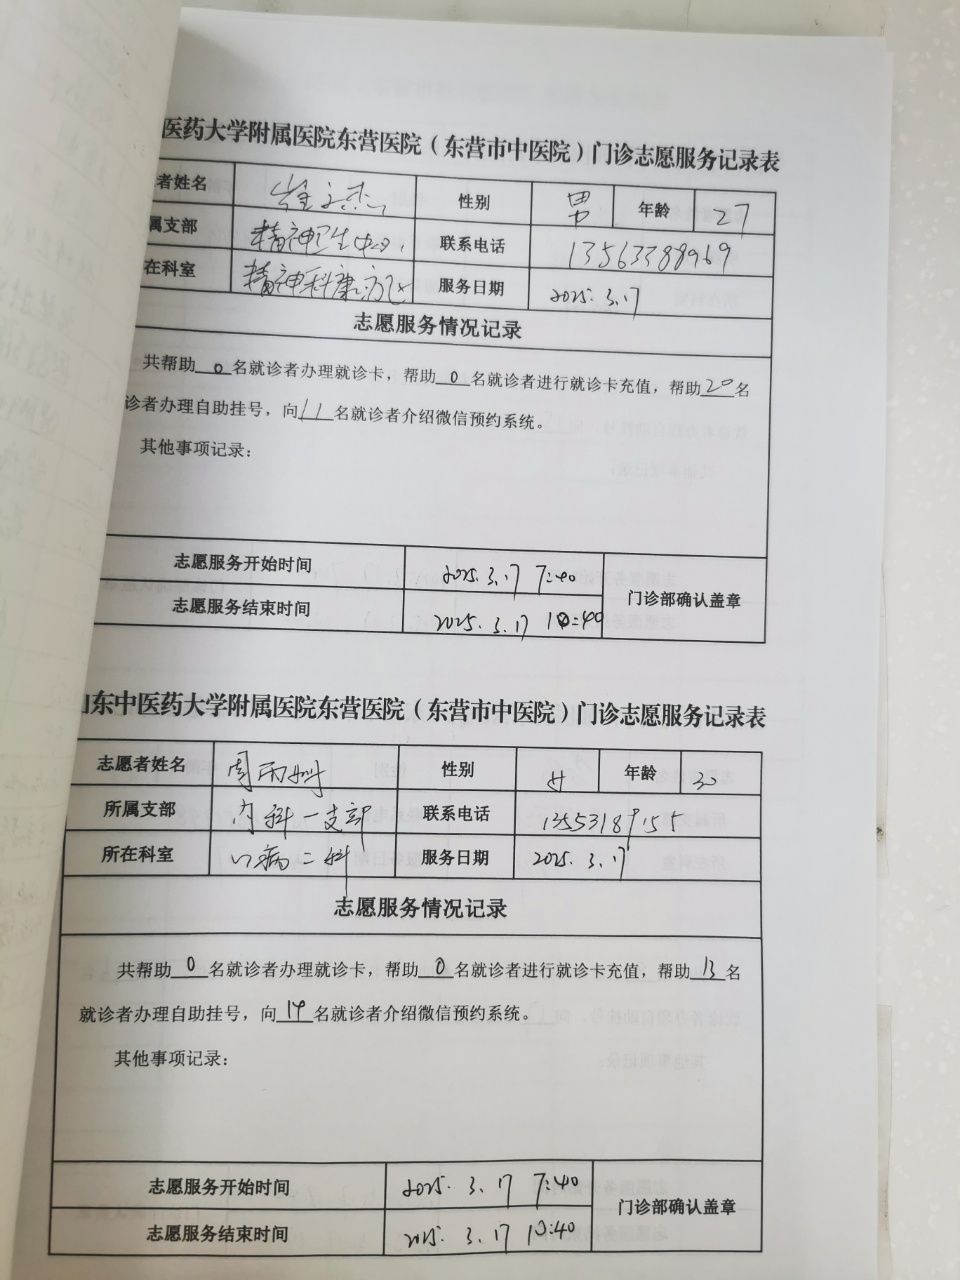 医药大学附属医院东营医院（东营市中医院）门诊志愿服务记录表
者姓名 性别 男 年龄 27
属支部 精神卫生中心 联系电话 13563388969
在科室 精神科康 服务日期 2025.3.17
志愿服务情况记录
共帮助0名就诊者办理就诊卡，帮助0名就诊者进行就诊卡充值，帮助20名
诊者办理自助挂号，向11名就诊者介绍微信预约系统。
其他事项记录：
志愿服务开始时间 2025.3.17 7:40
门诊部确认盖章
志愿服务结束时间 2025.3.17 10:40
山东中医药大学附属医院东营医院（东营市中医院）门诊志愿服务记录表
志愿者姓名 周雨 性别 女 年龄
所属支部 内科一支部 联系电话
所在科室 心病二科 服务日期 2025.3.17
志愿服务情况记录
共帮助0名就诊者办理就诊卡，帮助0名就诊者进行就诊卡充值，帮助13名
就诊者办理自助挂号，向14名就诊者介绍微信预约系统。
其他事项记录：
志愿服务开始时间 2025.3.17 7:40
门诊部确认盖章
志愿服务结束时间 2025.3.17 10:40